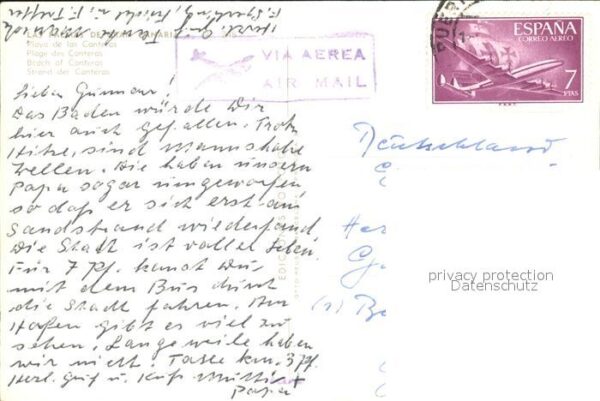 Playa de las Canteras
Plage des Canteras
Beach of Canteras
Strand der Canteras
VIA AEREA
AIR MAIL
ESPAÑA
CORREO AEREO
7
PTAS
Lieber Gunnar!
Das Baden würde Dir
hier auch gefallen. Trotz
Hitze, sind Mannshohe
Wellen. Die haben unsern
Papa sogar umgeworfen
so daß er sich erst am
Sandstrand wiederfand
Die Stadt ist voller Leben.
Für 7 Pf. kannst Du,
mit dem Bus durch
die Stadt fahren. Am
Hafen gibt es viel zu
sehen. Langeweile haben
wir nicht. Tasse 3 Pf.
Herl. Gruß u. Kuß Mutti +
Papa
Deutschland
privacy protection
Datenschutz